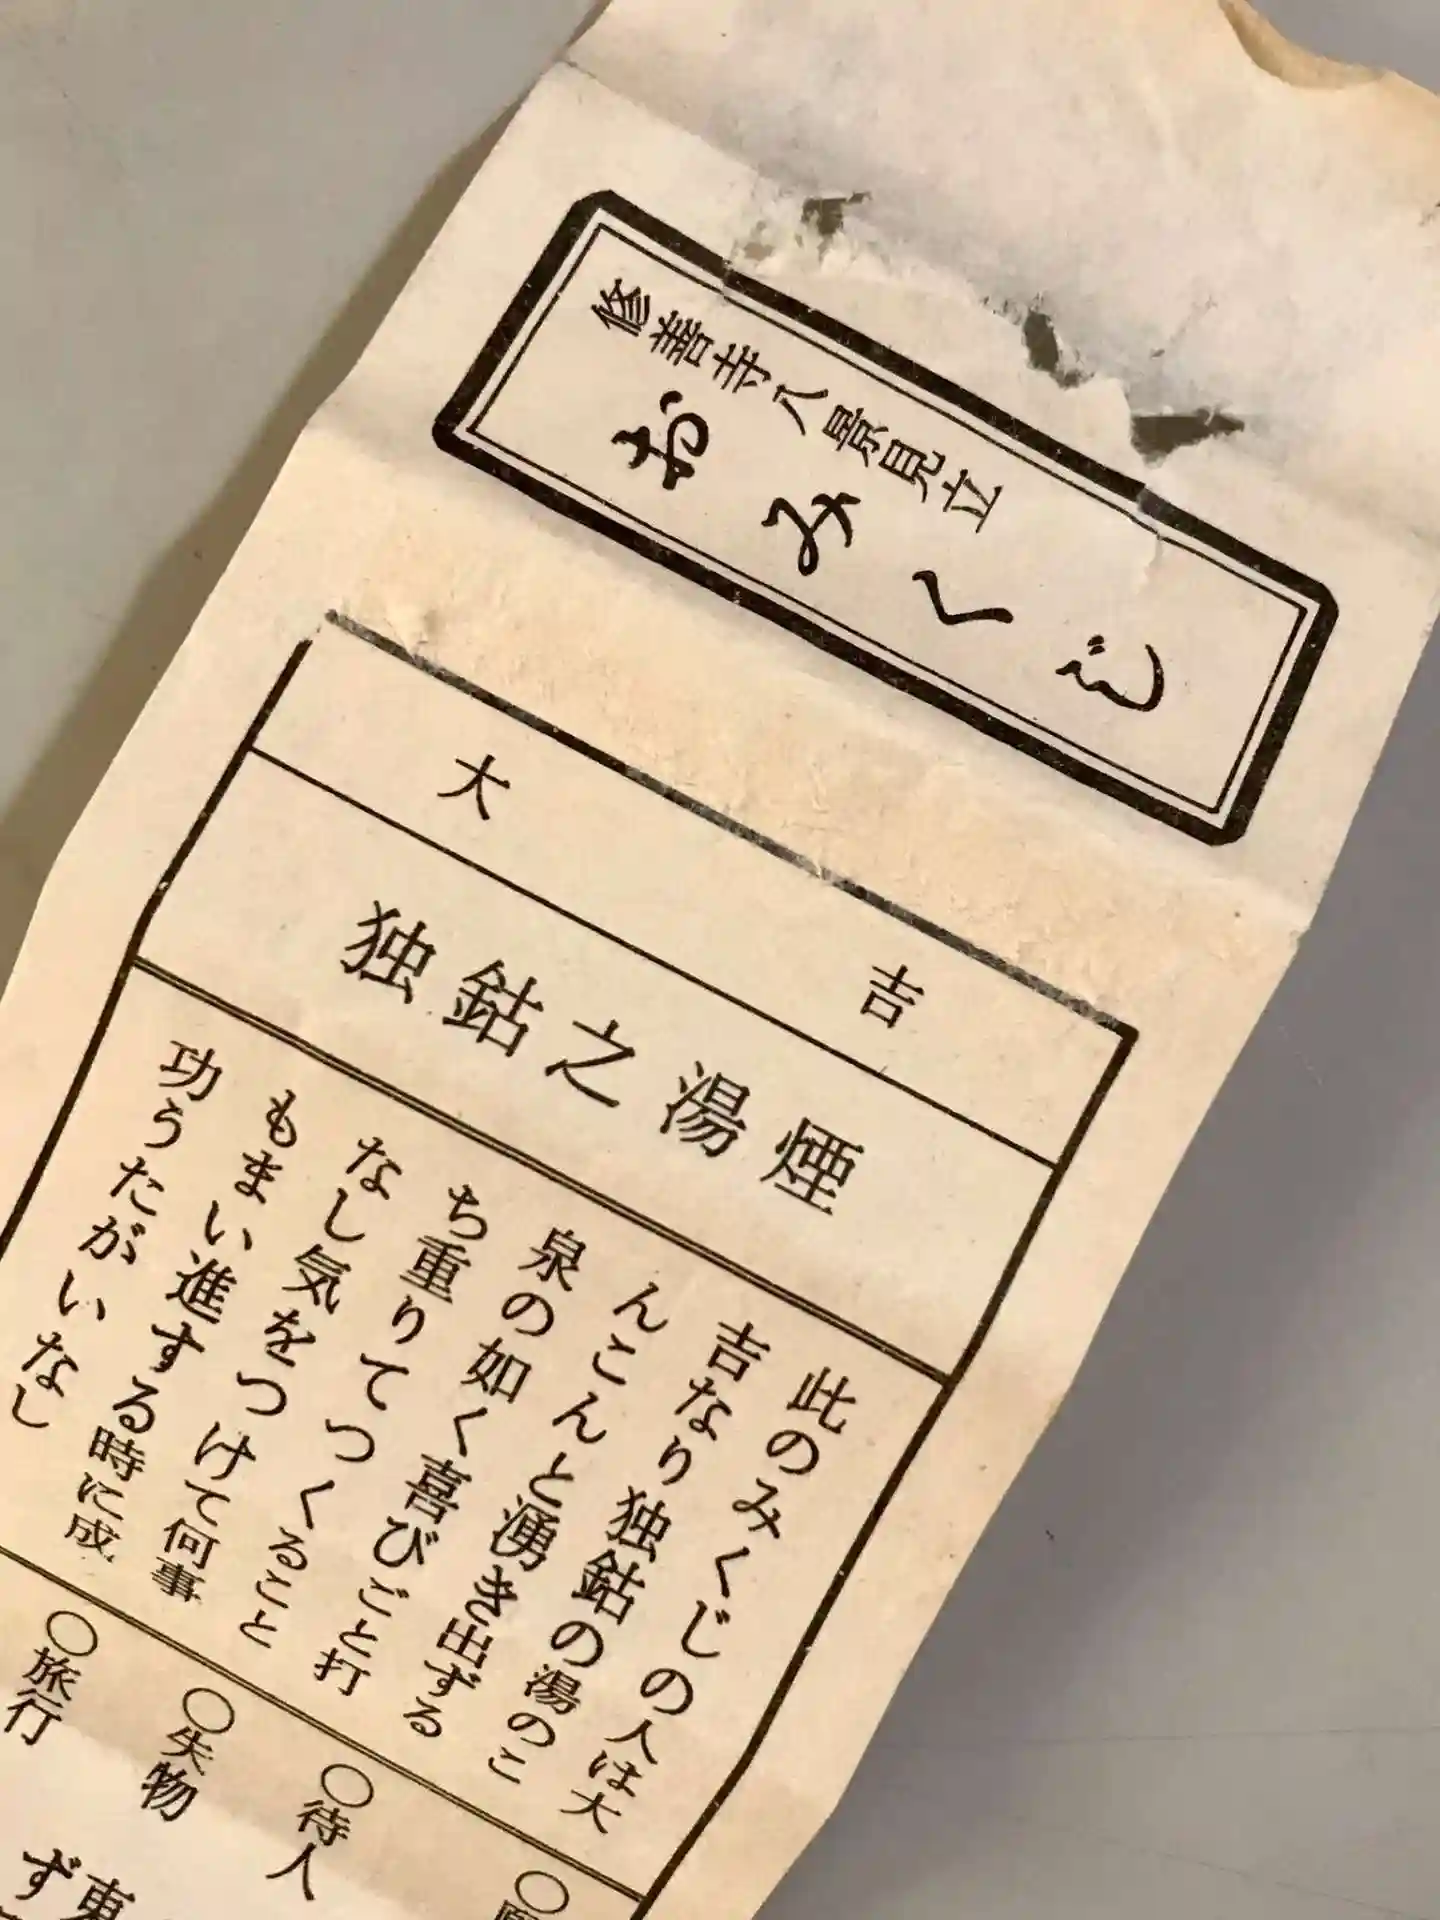 修善寺八景見立
おみくじ
大吉
独鈷之湯煙
此のみくじの人は大
吉なり独鈷の湯のこ
んこんと湧き出ずる
泉の如く喜びごと打
ち重りてつくること
なし気をつけて何事
もまい進する時に成
功うたがいなし
○待人
○失物
○旅行
東
ず